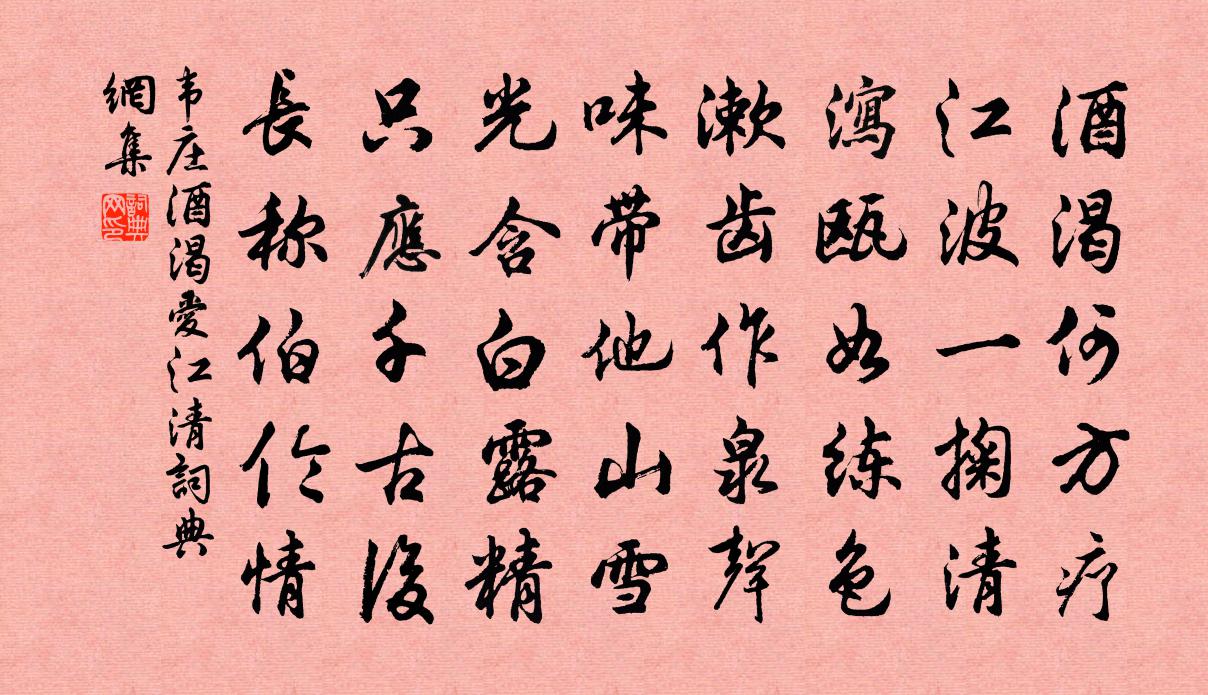 酒渴何方疗
江波一掬清
瀉瓯如练色
漱齿作泉聲
味带他山雪
光含白露精
只應千古後
長称伯伶情
韦庄酒渴愛江清詞典
網集
詞典网印